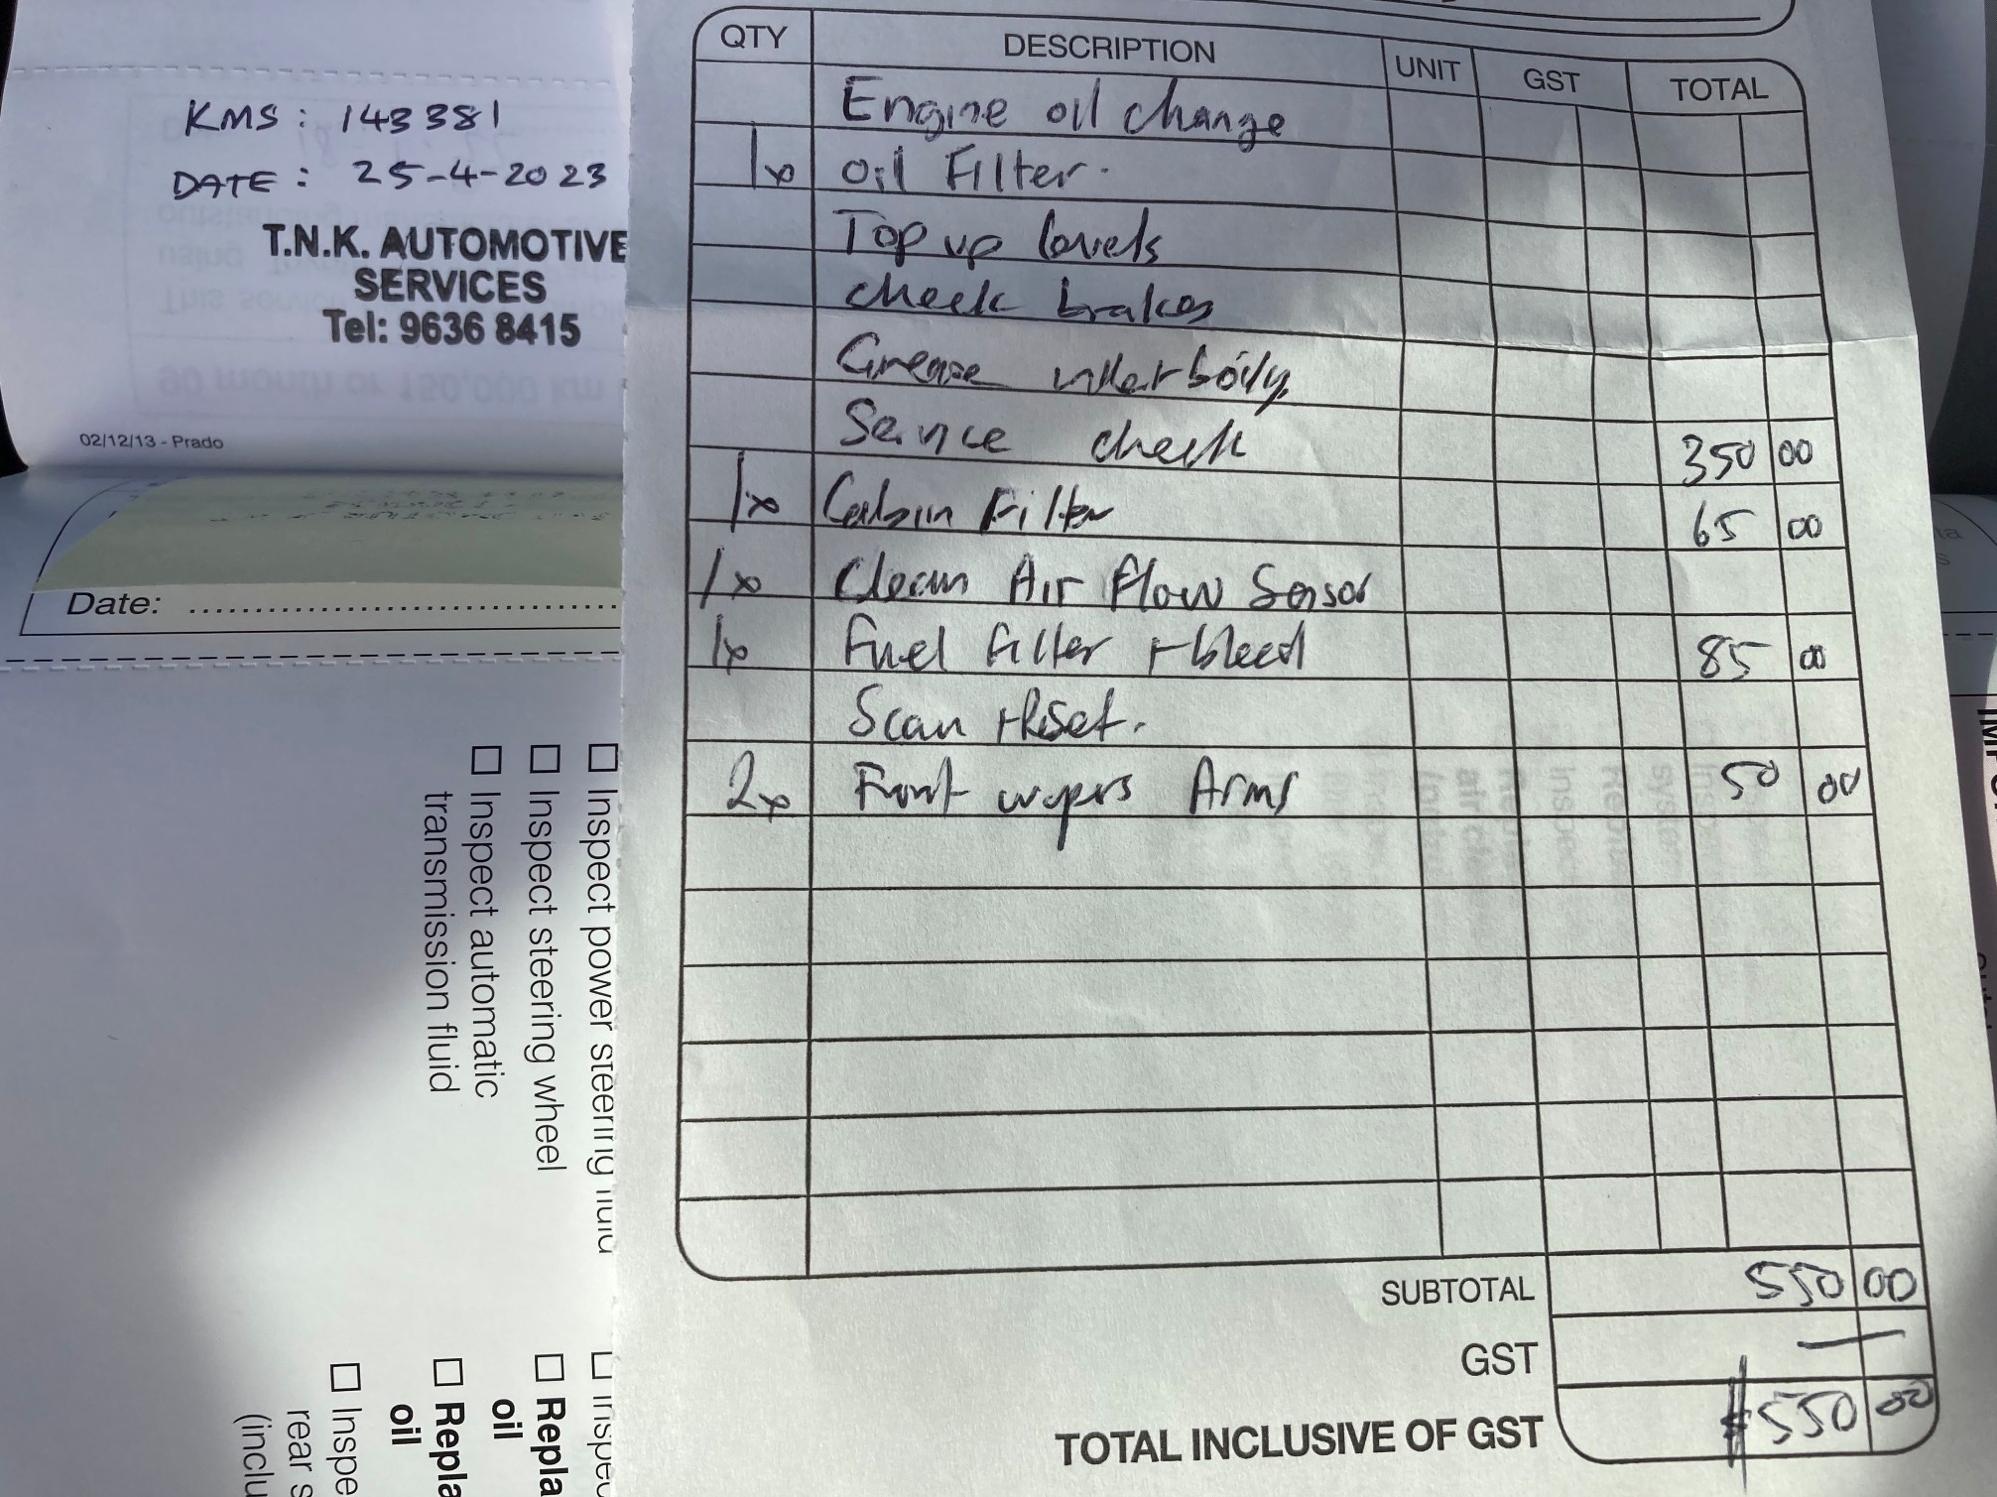 KMS: 143381
DATE: 25-4-2023
T.N.K. AUTOMOTIVE
SERVICES
Tel: 9636 8415
90 month or 150,000 km
02/12/13 - Prado
Date:
Inspect power steering fluid
Inspect steering wheel
Inspect automatic
transmission fluid
Repla
oil
Repla
oil
Inspe
rear s
(inclu
QTY DESCRIPTION UNIT GST TOTAL
Engine oil change
1x Oil Filter.
Top up levels
check brakes
Grease underbody
Service check 350 00
1x Cabin Filter 65 00
1x Clean Air Flow Sensor
1x Fuel filter + bleed 85 00
Scan + Reset.
2x Front wipers Arms 50 00
SUBTOTAL 550 00
GST —
TOTAL INCLUSIVE OF GST $550 00